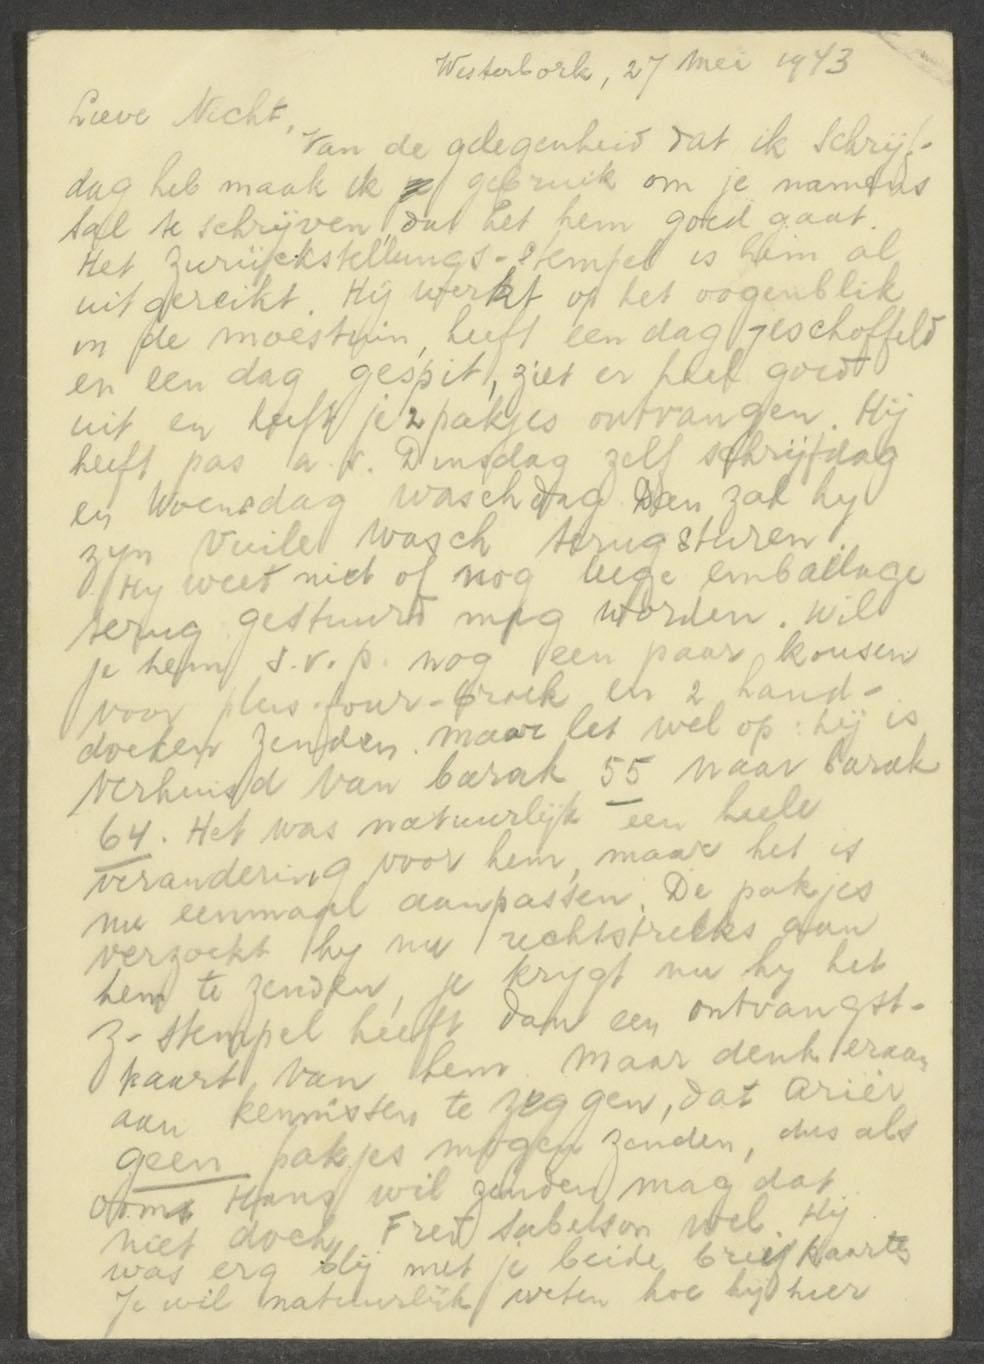 Westerbork, 27 Mei 1943
Lieve Nicht,
Van de gelegenheid dat ik schrijf-
dag heb maak ik gebruik om je namens
Sal te schrijven, dat het hem goed gaat.
Het Zurückstellungs-stempel is hem al
uitgereikt. Hij werkt op het oogenblik
in de moestuin, heeft een dag geschoffeld
en een dag gespit, ziet er heel goed
uit en heeft je 2 pakjes ontvangen. Hij
heeft pas a.s. Dinsdag zelf schrijfdag
en Woensdag waschdag. Dan zal hy
zyn vuile wasch terugsturen.
Hy weet niet of nog leege emballage
terug gestuurd mag worden. Wil
je hem s.v.p. nog een paar kousen
voor plus-four-broek en 2 hand-
doeken zenden. maar let wel op: hij is
verhuisd van barak 55 naar barak
64. Het was natuurlijk een heele
verandering voor hem, maar het is
nu eenmaal aanpassen. De pakjes
verzoekt hy nu rechtstreeks aan
hem te zenden, je krygt nu hy het
Z-stempel heeft dan een ontvangst-
kaart van hem. Maar denk eraan
aan kennissen te zeggen, dat Ariër
geen pakjes mogen zenden, dus als
Hans wil zenden mag dat
niet doch Fred Sabelson wel. Hij
was erg blij met je beide briefkaarten
Je wil natuurlijk weten hoe hy hier